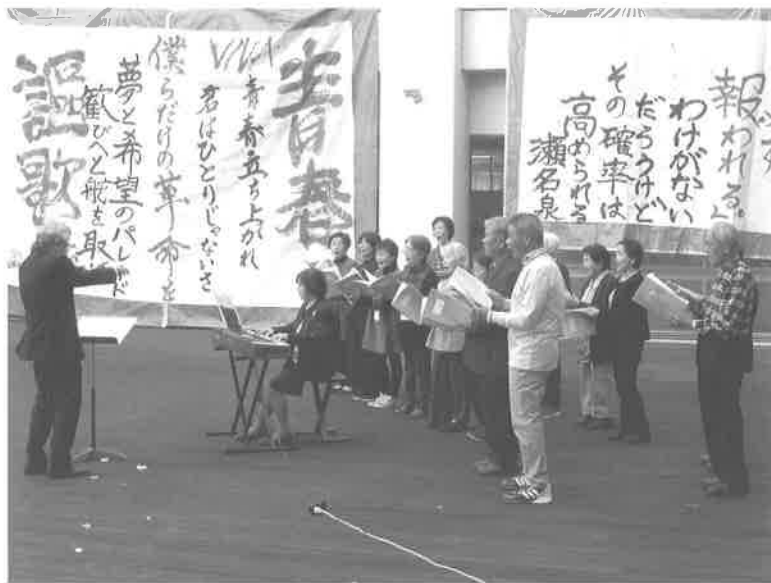 青春
VIVA
青春立ち上がれ
君はひとりじゃないさ
僕らだけの革命を
夢と希望のパレードだ
歓びへと舵を取
謳歌
報われる。
わけがない
だろうけど
その確率は
高められる
瀬名泉